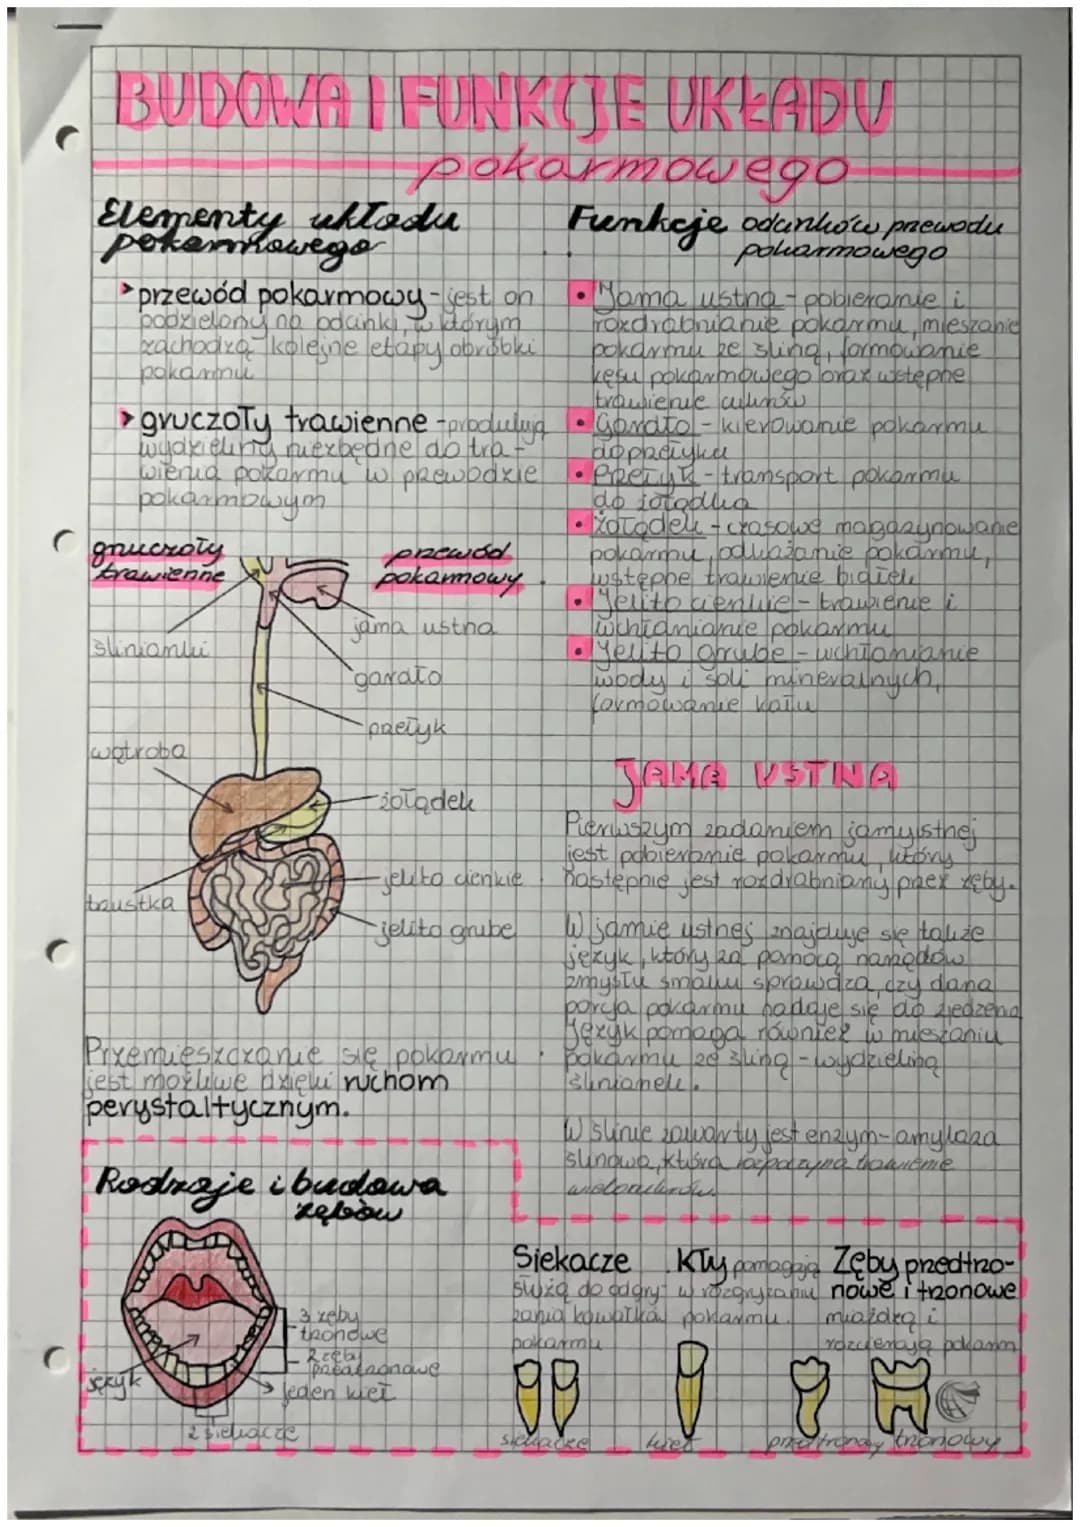 BUDOWA I FUNKCJE UKŁADU
pokarmowego
Elementy układu
pokarmowego
przewód pokarmowy - jest on
podzielony na odcinki, w którym
zachodzą kolejne etapy obróbki
pokarmu
gruczoły trawienne - produkują
wydzieliny niezbędne do tra-
wienia pokarmu w przewodzie
pokarmowym
gruczoły
trawienne
przewód
pokarmowy
jama ustna
ślinianki
gardło
przełyk
wątroba
żołądek
jelito cienkie
trzustka
jelito grube
Przemieszczanie się pokarmu
jest możliwe dzięki ruchom
perystaltycznym.
Funkcje odcinków przewodu
pokarmowego
Jama ustna - pobieranie i
rozdrabnianie pokarmu, mieszanie
pokarmu ze śliną, formowanie
kęsu pokarmowego oraz wstępne
trawienie cukrów
Gardło - kierowanie pokarmu
do przełyku
Przełyk - transport pokarmu
do żołądka
żołądek - czasowe magazynowanie
pokarmu, odkażanie pokarmu,
wstępne trawienie białek
Jelito cienkie - trawienie i
wchłanianie pokarmu
Jelito grube - wchłanianie
wody i soli mineralnych,
formowanie kału
JAMA USTNA
Pierwszym zadaniem jamy ustnej
jest pobieranie pokarmu, który
następnie jest rozdrabniany przez zęby.
W jamie ustnej znajduje się także
język, który za pomocą narządów
zmysłu smaku sprawdza, czy dana
porcja pokarmu nadaje się do zjedzenia
Język pomaga również w mieszaniu
pokarmu ze śliną - wydzieliną
ślinianek.
W ślinie zawarty jest enzym - amylaza
ślinowa, która rozpoczyna trawienie
wielocukrów.
Rodzaje i budowa
zębów
3 zęby
trzonowe
2 zęby
przedtrzonowe
język
jeden kieł
2 siekacze
Siekacze
służą do odgry-
zania kawałka
pokarmu
Kły pomagają
w rozgryzaniu
pokarmu.
Zęby przedtrzo-
nowe i trzonowe
miażdżą i
rozcierają pokarm
siekacze
kieł
przedtrzonowy
trzonowy